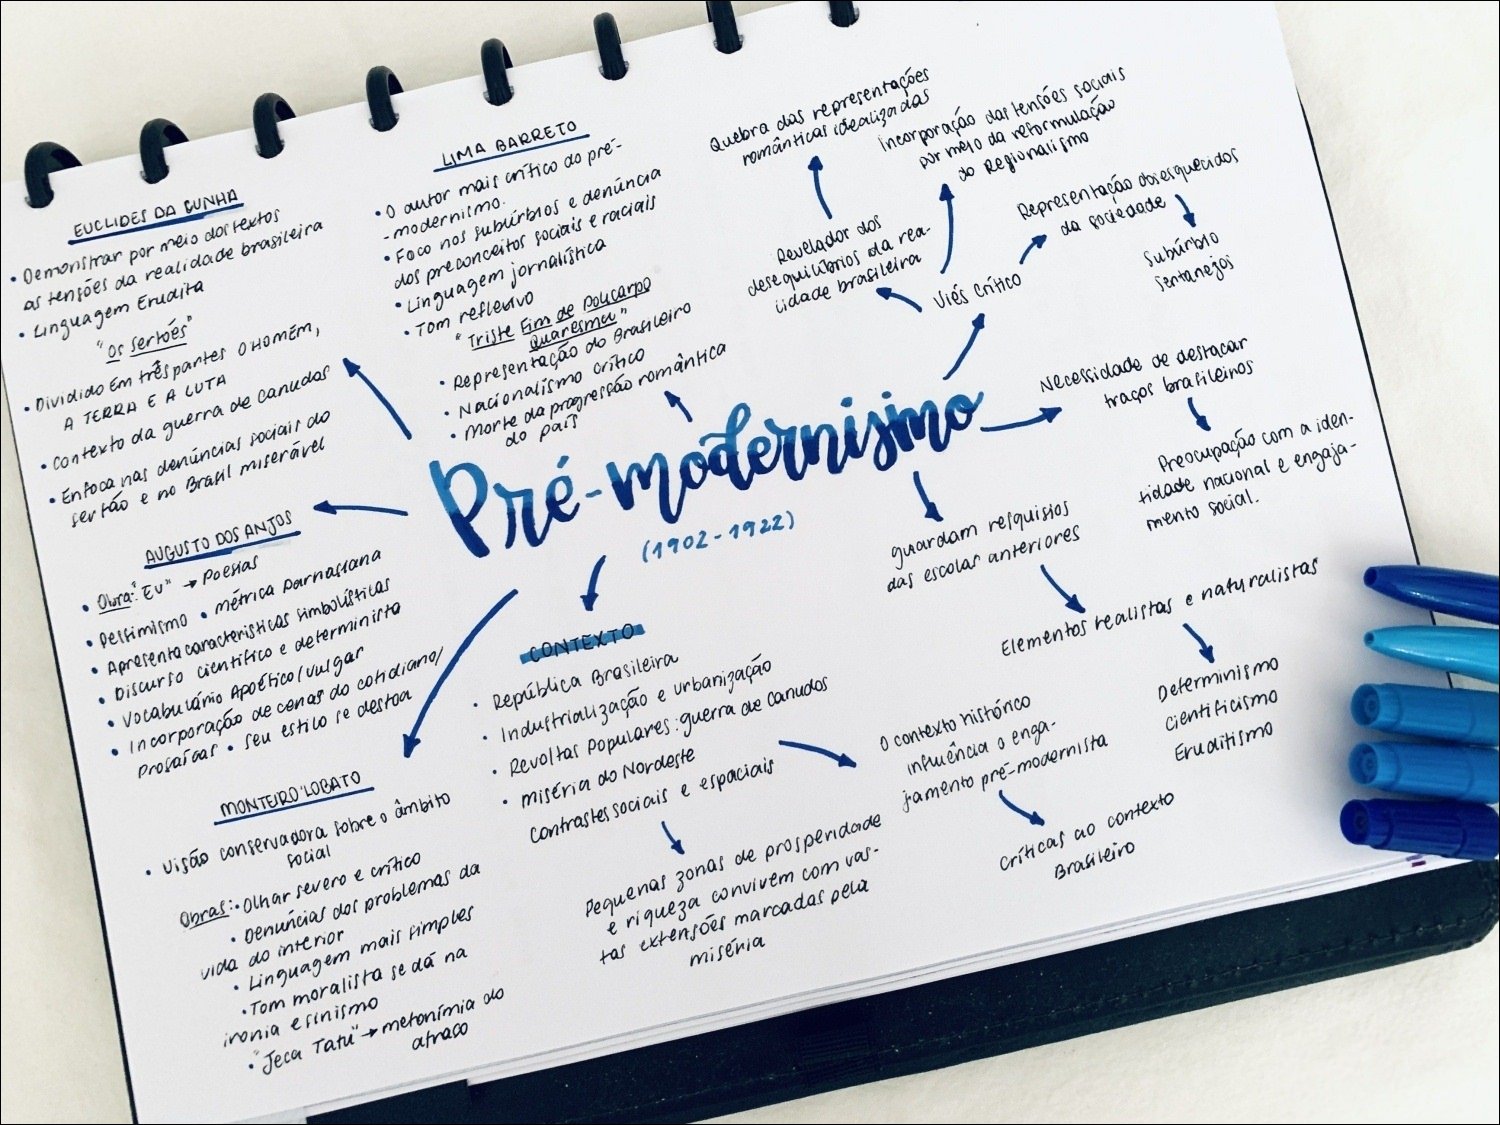 EUCLIDES DA CUNHA
• Demonstrar por meio dos textos
as tensões da realidade brasileira
• Linguagem Erudita
"Os Sertões"
• Dividido em três partes O HOMÉM,
A TERRA E A LUTA
• Contexto da guerra de canudos
• Enfoca nas denúncias sociais do
sertão e no Brasil miserável
LIMA BARRETO
• O autor mais crítico do pré-
-modernismo.
• Foco nos subúrbios e denúncia
dos preconceitos sociais e raciais
• Linguagem jornalística
• Tom reflexivo
"Triste Fim de Policarpo
Quaresma"
• Representação do Brasileiro
• Nacionalismo crítico
• Morte da progressão romântica
do país
Quebra das representações
românticas idealizadas
Incorporação das tensões sociais
por meio da reformulação
do Regionalismo
Representação dos esquecidos
da sociedade
Subúrbio
Sertanejos
Revelador dos
desequilíbrios da rea-
lidade brasileira
Viés crítico
Necessidade de destacar
traços brasileiros
Preocupação com a iden-
tidade nacional e engaja-
mento social.
Pré-modernismo
(1902-1922)
guardam resquisios
das escolas anteriores
Elementos realistas e naturalistas
Determinismo
cientificismo
Eruditismo
AUGUSTO DOS ANJOS
• Obra: "EU" → Poesias
• Pessimismo • métrica Parnasiana
• Apresenta características simbolísticas
• Discurso científico e determinista
• Vocabulário Apoético/vulgar
• Incorporação de cenas do cotidiano/
Prosaícas • seu estilo se destoa
CONTEXTO
• República Brasileira
• Industrialização e urbanização
• Revoltas Populares: guerra de Canudos
• miséria do Nordeste
Contrastes sociais e espaciais
Pequenas zonas de prosperidade
e riqueza convivem com vas-
tas extensões marcadas pela
miséria
O contexto histórico
influência o enga-
jamento pré-modernista
Críticas ao contexto
Brasileiro
MONTEIRO LOBATO
• Visão conservadora sobre o âmbito
social
Obras: • Olhar severo e crítico
• Denúncias dos problemas da
vida do interior
• Linguagem mais simples
• Tom moralista se dá na
ironia e sinismo
• "Jeca Tatu" → metonímia do
atraco